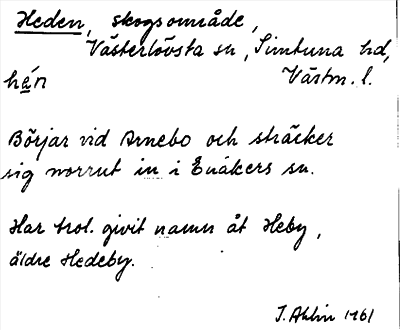 Heden, skogsområde,
Västerlövsta sn, Simtuna hd,
hén Västm. l.
Börjar vid Arnebo och sträcker
sig norrut in i Enåkers sn.
Har trol. givit namn åt Heby,
äldre Hedeby.
J. Ahlin 1961